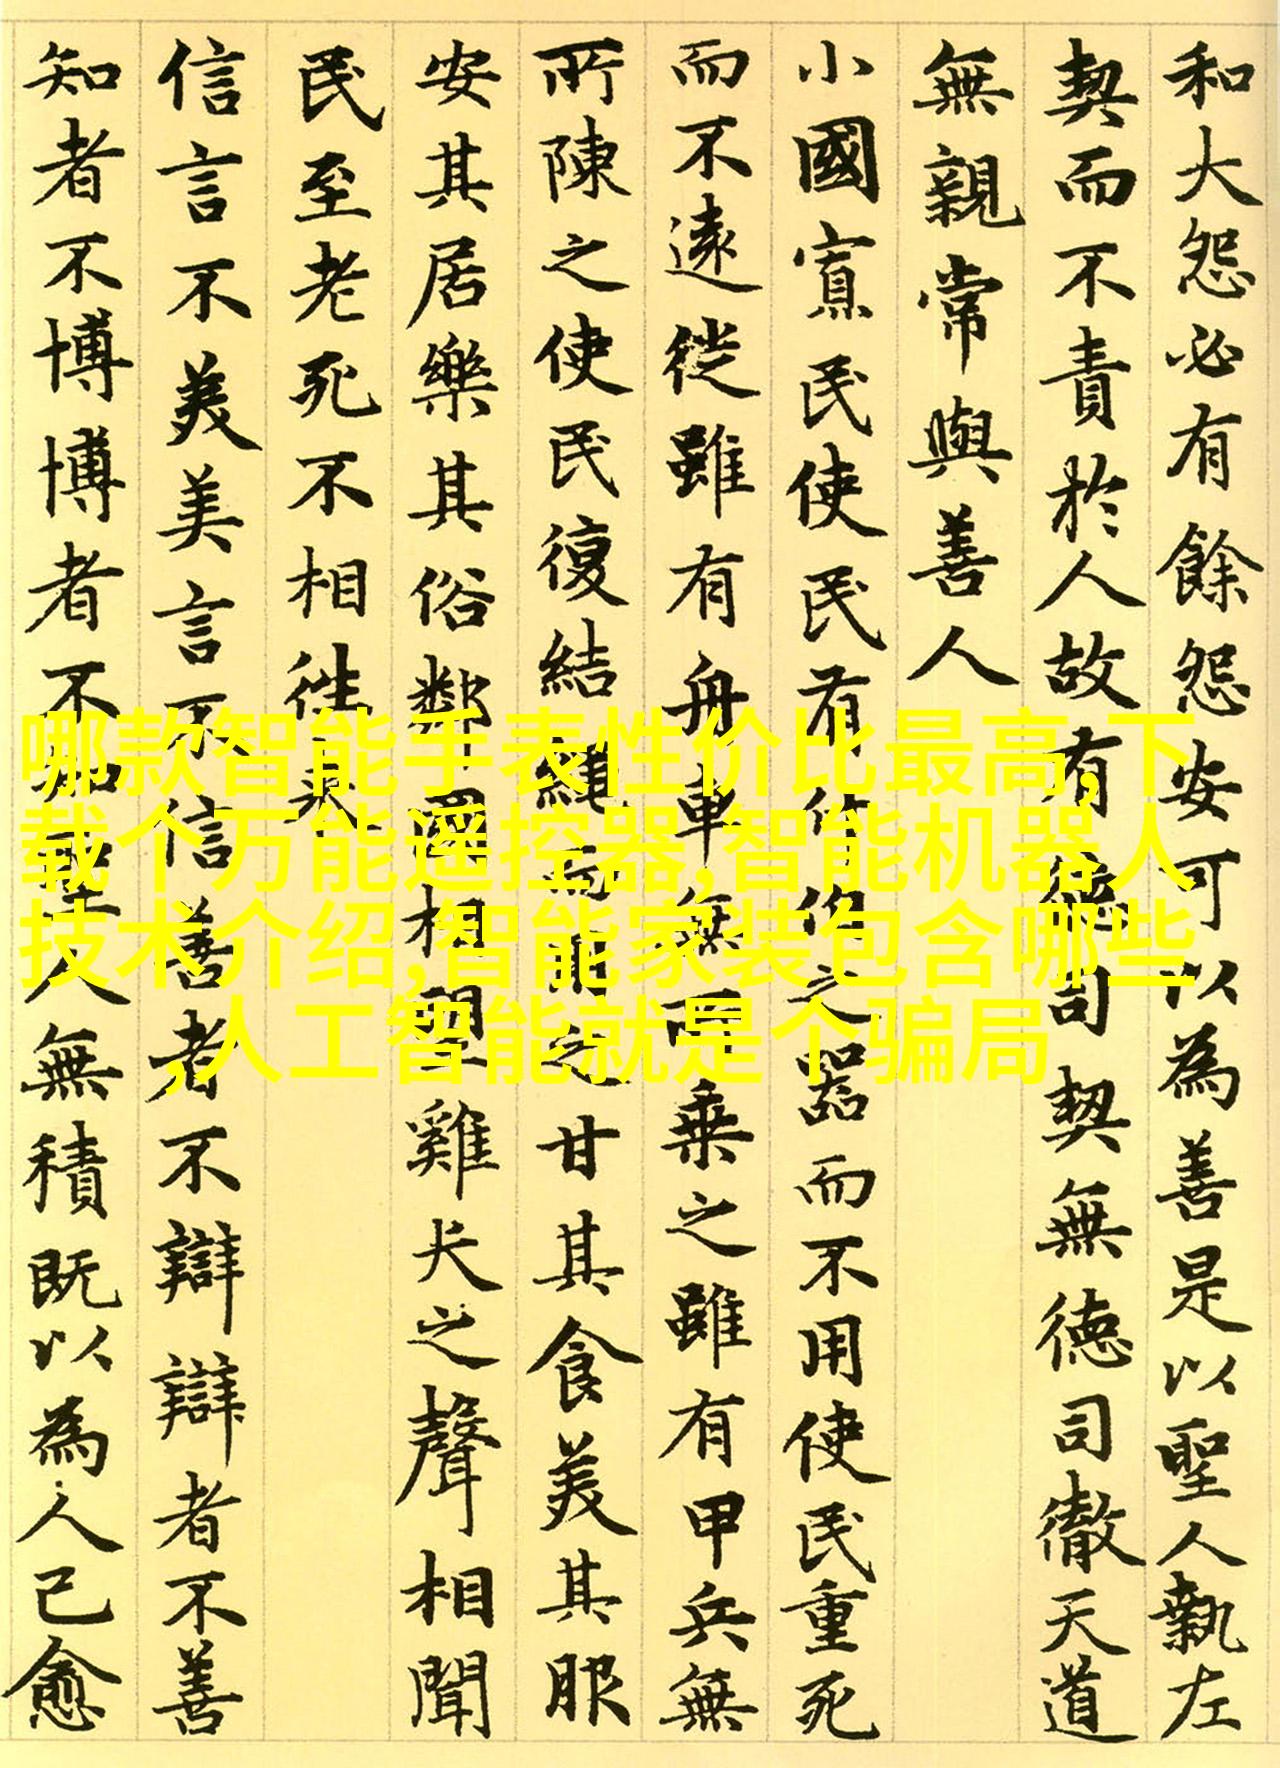 和大怨必有餘怨安可以為善是以聖人執左
契而不責於人故有德司契無德司徹天道
無親常與善人
小國寡民使民有什伯之器而不用使民重死
而不遠徙雖有舟車無所乗之雖有甲兵無
所陳之使民復結繩而用之甘其食美其服
安其居樂其俗鄰國相望雞犬之聲相聞
民至老死不相往来
信言不美美言不信善者不辯辯者不善
知者不博博者不知聖人無積既以為人己愈
哪款智能手表性价比最高,下
载个万能遥控器,智能机器人
技术介绍,智能家装包含哪些
,人工智能就是个骗局